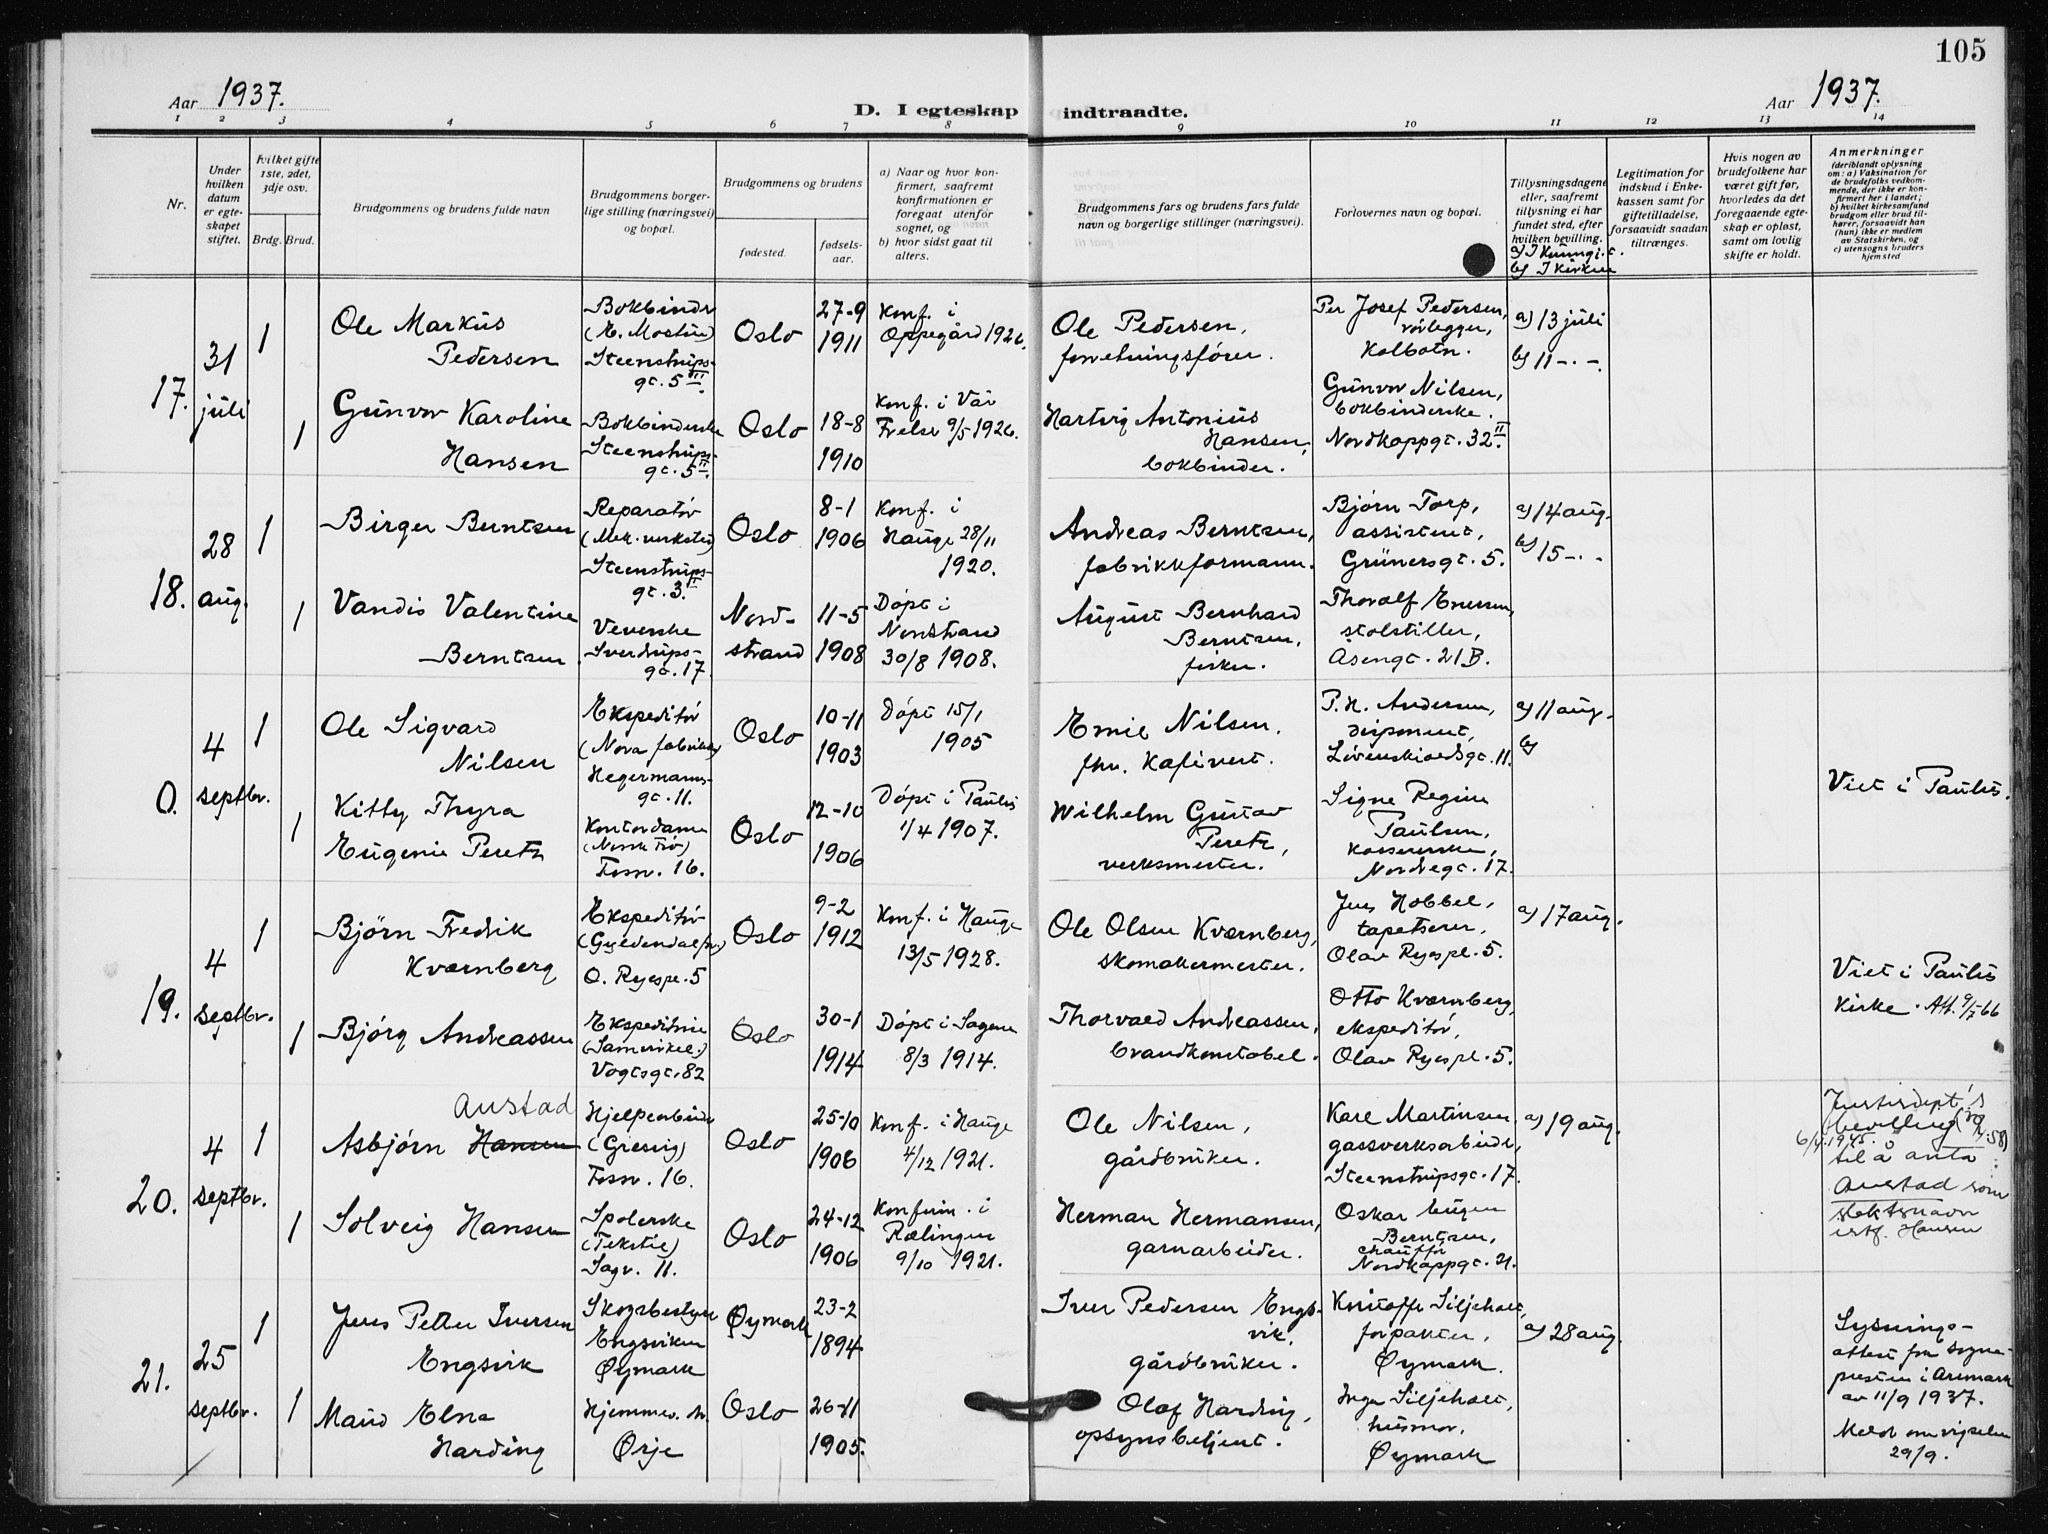 105
Aar 1937.
D. I egteskap indtraadte.
Aar 1937.
1 2 3 4 5 6 7 8 9 10 11 12 13 14
Nr.
Under
hvilken
datum
er egte-
skapet
stiftet.
Hvilket gifte
1ste, 2det,
3dje osv.
Brdg. Brud.
Brudgommens og brudens fulde navn
Brudgommens borger-
lige stilling (næringsvei)
og bopæl.
Brudgommens og brudens
fødested.
fødsels-
aar.
a) Naar og hvor kon-
firmert, saafremt
konfirmationen er
foregaat utenfor
sognet, og
b) hvor sidst gaat til
alters.
Brudgommens fars og brudens fars fulde
navn og borgerlige stillinger (næringsvei).
Forlovernes navn og bopæl.
Tillysningsdagene
eller, saafremt
tillysning ei har
fundet sted, efter
hvilken bevilling.
b) I kirken
Legitimation for
indskud i Enke-
kassen samt for
giftetilladelse,
forsaavidt saadan
tiltrænges.
Hvis nogen av
brudefolkene har
været gift før,
hvorledes da det
foregaaende egte-
skap er opløst,
samt om lovlig
skifte er holdt.
Anmerkninger
(deriblandt oplysning
om: a) Vaksination for
de brudefolks vedkom-
mende, der ikke er kon-
firmert her i landet;
b) hvilket kirkesamfund
brudgom eller brud til-
hører, forsaavidt han
(hun) ikke er medlem
av Statskirken, og
c) utensogns bruders
hjemsted
17.
31
juli
1
Ole Markus
Pedersen
Bokbinder
(E. Mostue)
Steenstrups-
gt. 5 II.
Oslo
27-9
1911
Konf. i
Oppegård 1926.
Ole Pedersen,
forretningsfører.
Per Josef Pedersen,
rørlegger,
Kolbotn.
a) 13 juli
b) 11 -.-.
1
Gunvor Karoline
Hansen
Bokbinderske
Steenstrups-
gt. 5 II.
Oslo
18-8
1910
Konf. i Vår
Frelser 9/5 1926.
Hartvig Antonius
Hansen,
bokbinder.
Gunvor Nilsen,
bokbinderske.
Nordkappgt. 32 II.
18.
28
aug.
1
Birger Berntsen
Reparatør
(Mek. verksted)
Steenstrups-
gt. 3. II
Oslo
8-1
1906
Konf. i
Hauge 28/11
1920.
Andreas Berntsen,
fabrikkformann.
Bjørn Torp,
assistent,
Grünersgt. 5.
a) 14 aug.
b) 15 -.-
1
Vandis Valentine
Berntsen.
Veverske
Sverdrups-
gt. 17.
Nord-
strand
11-5
1908
Døpt i
Nordstrand
30/8 1908.
August Bernhard
Berntsen,
fisker.
Thoralf Enersen,
stolstiller,
Åsengt. 21B.
0.
4
septbr.
1
Ole Sigvard
Nilsen
Ekspeditør
(Nova fabrikker)
Hegermanns-
gt. 11.
Oslo
10-11
1903
Døpt 15/1
1905
Emil Nilsen,
fhv. kafévert.
P. H. Andersen,
disponent,
Løvenskioldsgt. 11.
a) 11 aug.
b)
Viet i Paulus.
1
Kitty Thyra
Eugenie Peretz
Kontordame
(Norsk Frø)
Fossv. 16.
Oslo
12-10
1906
Døpt i Paulus
1/4 1907.
Wilhelm Gustav
Peretz,
verksmester.
Signe Regine
Paulsen,
kassererske,
Nordregt. 17.
19.
4
septbr.
1
Bjørn Fredrik
Kværnberg
Ekspeditør
(Gyldendal)
O. Ryespl. 5
Oslo
9-2
1912
Konf. i Hauge
13/5 1928.
Ole Olsen Kværnberg,
skomakermester.
Jens Hobbel,
tapetserer,
Olav Ryespl. 5.
a) 17 aug.
Viet i Paulus
Kirke. Att. 9/7 66
1
Bjørg Andreassen
Ekspeditrise
(Samvirkel.)
Vogtsgt. 82
Oslo
30-1
1914
Døpt i Sagene
8/3 1914.
Thorvald Andreassen,
brandkonstabel.
Otto Kværnberg,
ekspeditør,
Olav Ryespl. 5.
20.
4
septbr.
1
Anstad
Asbjørn Hansen
Hjelpearbeider
(Gresvig)
Fossv. 16.
Oslo
25-10
1906
Konf. i Hauge
4/12 1921.
Ole Nilsen,
gårdbruker.
Kåre Martinsen,
gassverksarbeider,
Steenstrupsgt. 17.
a) 19 aug.
Justisdept's
bevilling
6/4. 1945.
til å anta
Anstad som
slektsnavn
istf. Hansen
1
Solveig Hansen
Spolerske
(Tekstil)
Sagv. 11.
Oslo
24-12
1906
Konfirm. i
Rælingen
9/10 1921.
Herman Hermansen,
garnarbeider.
Oskar Eugen
Berntsen,
chauffør
Nordkappgt. 21.
21.
25
septbr.
1
Jens Petter Iversen
Engsvik
Skogsbestyrer
Engsviken
Øymark
Øymark
23-2
1894
Iver Pedersen Engs-
vik,
gårdbruker.
Kristoffer Siljeholt,
forpakter,
Øymark.
a) 28 aug.
Lysnings-
attest fra sogne-
presten i Aremark
av 11/9 1937.
Meldt om vigselen
29/9.
1
Maud Elna
Harding
Hjemmev.
Ørje
Oslo
26-11
1905.
Olaf Harding,
opsynsbetjent.
Inga Siljeholt,
husmor,
Øymark